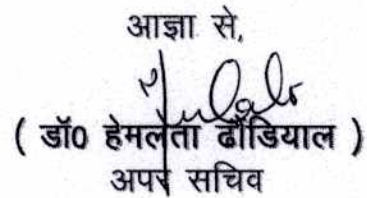 आज्ञा से,
( डॉ0 हेमलता ढौंडियाल )
अपर सचिव